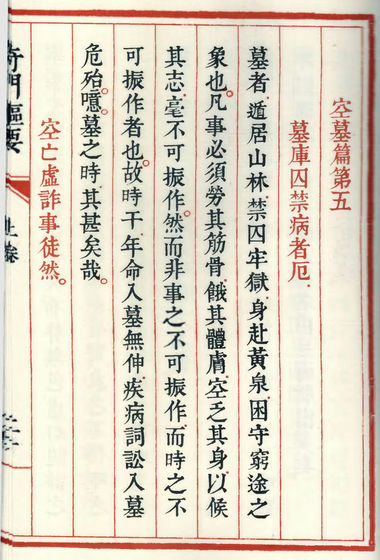 空墓篇第五
墓庫囚禁病者厄。
墓者.遁居山林.禁囚牢獄.身赴黃泉.困守窮途之
象也。凡事必須勞其筋骨.餓其體膚.空乏其身.以候
其志.毫不可振作。然而非事之不可振作.而時之不
可振作者也。故時干年命入墓無伸.疾病詞訟入墓
危殆。噫。墓之時.其甚矣哉。
空亡虛詐事徒然。
奇門樞要
上卷